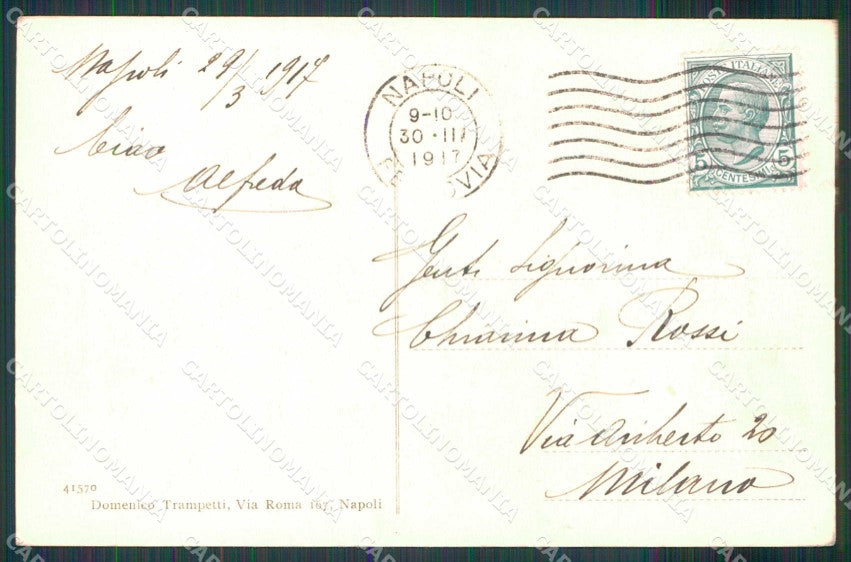 Napoli 29/3 1917
Ciao
Alfreda
NAPOLI
9-10
30·III
1917
VIA
POSTE ITALIANE
5 5
CENTESIMI
Gent. Signorina
Chiarina Rossi
Via Ariberto 20
Milano
41570
Domenico Trampetti, Via Roma 167, Napoli
CARTOLINOMANIA